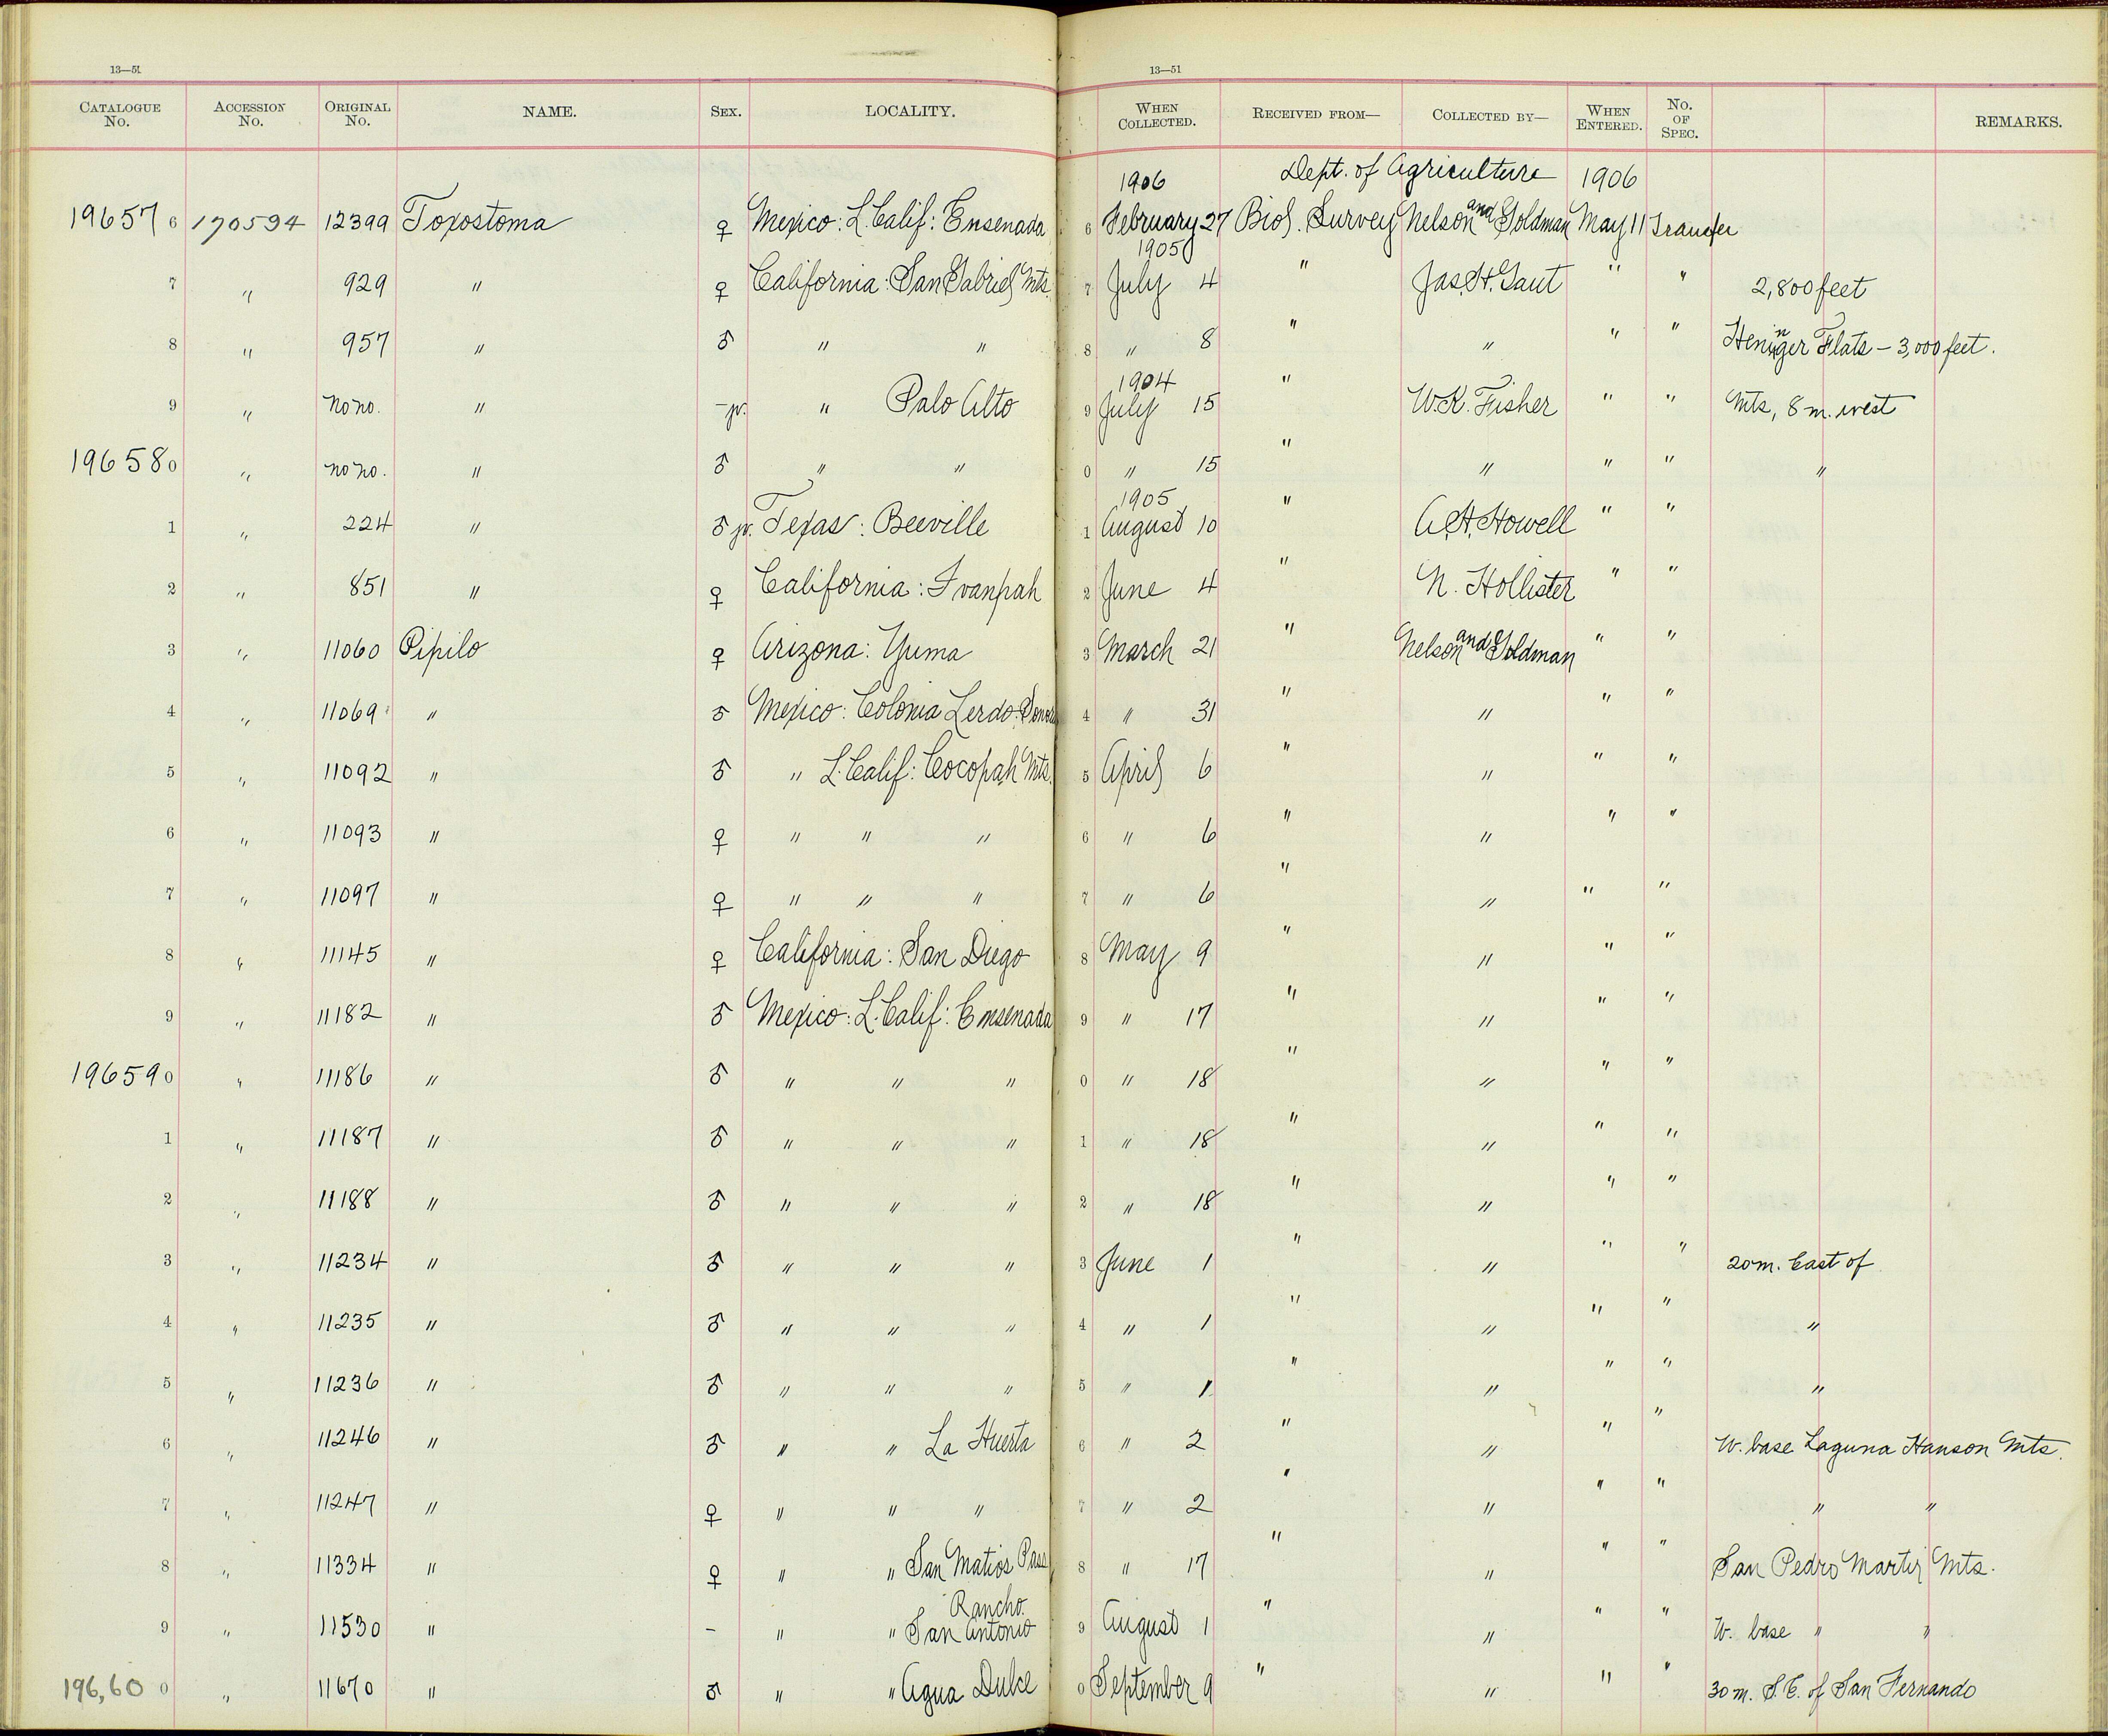 13—51 13—51
CATALOGUE No. ACCESSION No. ORIGINAL No. NAME. SEX. LOCALITY. WHEN COLLECTED. RECEIVED FROM— COLLECTED BY— WHEN ENTERED. No. OF SPEC. REMARKS.
1906 Dept. of Agriculture 1906
19657 6 170594 12399 Toxostoma ♀ Mexico: L. Calif: Ensenada 6 February 27 Biol. Survey Nelson and Goldman May 11 Transfer
1905
7 " 929 " ♀ California: San Gabriel Mts. 7 July 4 " Jas. H. Gaut " " 2,800 feet
8 " 957 " ♂ " " 8 " 8 " " " " Henniger Flats – 3,000 feet.
1904
9 " no no. " – jv. " Palo Alto 9 July 15 " W.K. Fisher " " Mts, 8 m. west
19658 0 " no no. " ♂ " " 0 " 15 " " " " "
1905
1 " 224 " ♂ jv. Texas: Beeville 1 August 10 " A.H. Howell " "
2 " 851 " ♀ California: Ivanpah 2 June 4 " N. Hollister " "
3 " 11060 Pipilo ♀ Arizona: Yuma 3 March 21 " Nelson and Goldman " "
4 " 11069 " ♂ Mexico: Colonia Lerdo: Sonora 4 " 31 " " " "
5 " 11092 " ♂ " L. Calif: Cocopah Mts. 5 April 6 " " " "
6 " 11093 " ♀ " " " 6 " 6 " " " "
7 " 11097 " ♀ " " " 7 " 6 " " " "
8 " 11145 " ♀ California: San Diego 8 May 9 " " " "
9 " 11182 " ♂ Mexico: L. Calif: Ensenada 9 " 17 " " " "
19659 0 " 11186 " ♂ " " " 0 " 18 " " " "
1 " 11187 " ♂ " " " 1 " 18 " " " "
2 " 11188 " ♂ " " " 2 " 18 " " " "
3 " 11234 " ♂ " " " 3 June 1 " " " " 20 m. East of
4 " 11235 " ♂ " " " 4 " 1 " " " " "
5 " 11236 " ♂ " " " 5 " 1 " " " " "
6 " 11246 " ♂ " " La Huerta 6 " 2 " " " " W. base Laguna Hanson Mts.
7 " 11247 " ♀ " " " 7 " 2 " " " " " "
8 " 11334 " ♀ " " San Matios Pass 8 " 17 " " " " San Pedro Martir Mts.
Rancho
9 " 11530 " – " " San Antonio 9 August 1 " " " " W. base " "
196,60 0 " 11670 " ♂ " " Agua Dulce 0 September 9 " " " " 30 m. S.E. of San Fernando